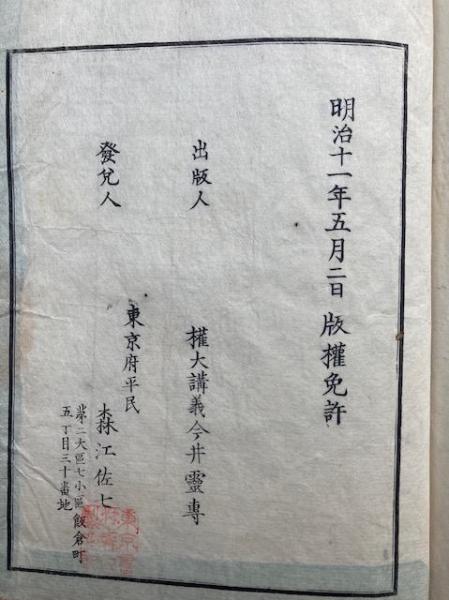 明治十一年五月二日 版權免許
出版人 權大講義今井靈專
發兌人 東京府平民
森江佐七
第二大區七小區飯倉町
五丁目三十畨地